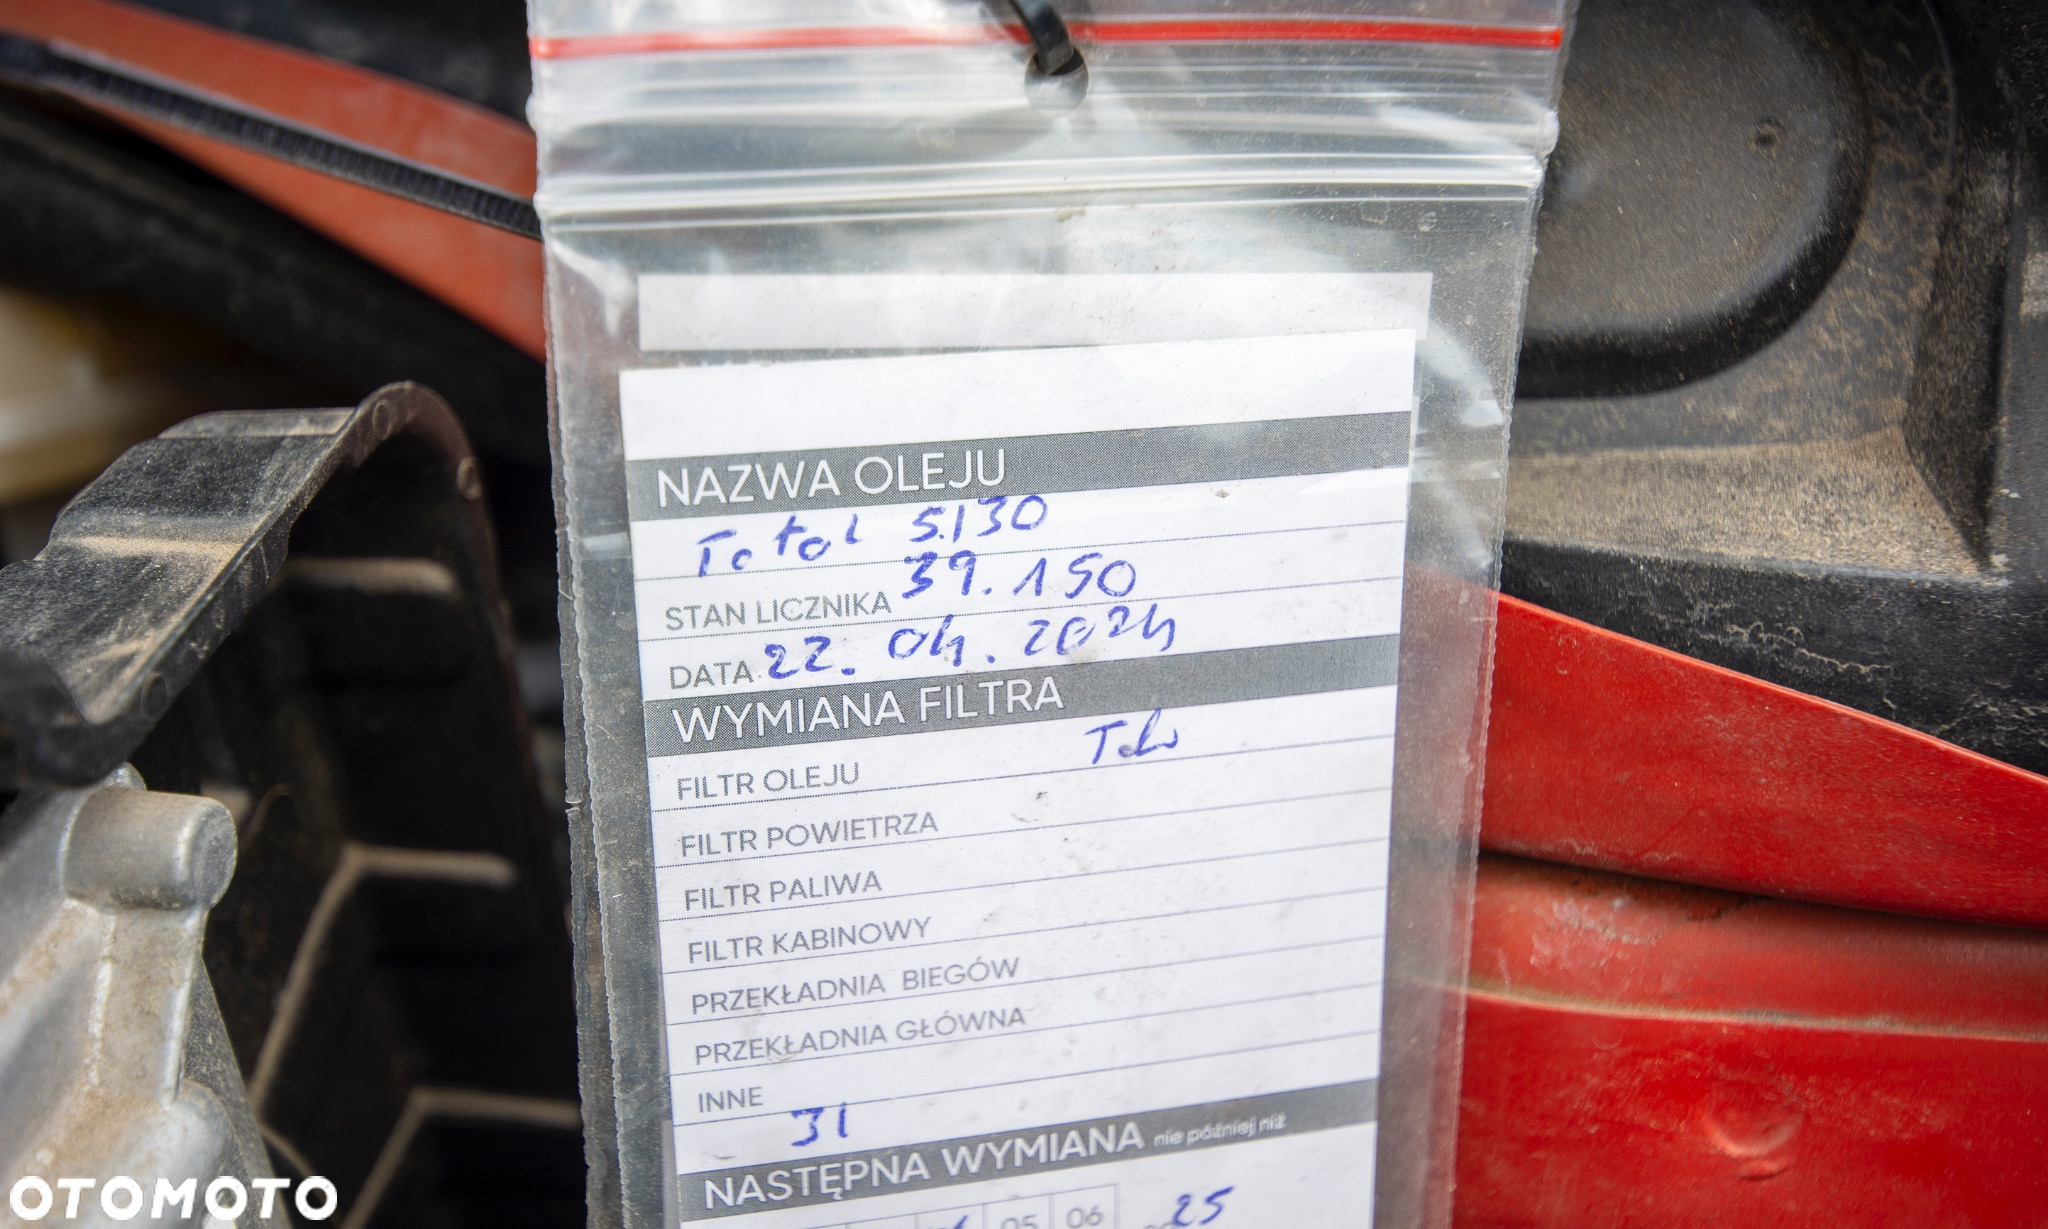 NAZWA OLEJU
Total 5/30
STAN LICZNIKA 39.150
DATA 22.04.2024
WYMIANA FILTRA
FILTR OLEJU Tak
FILTR POWIETRZA
FILTR PALIWA
FILTR KABINOWY
PRZEKŁADNIA BIEGÓW
PRZEKŁADNIA GŁÓWNA
INNE
3l
NASTĘPNA WYMIANA nie później niż
05 06 25
OTOMOTO